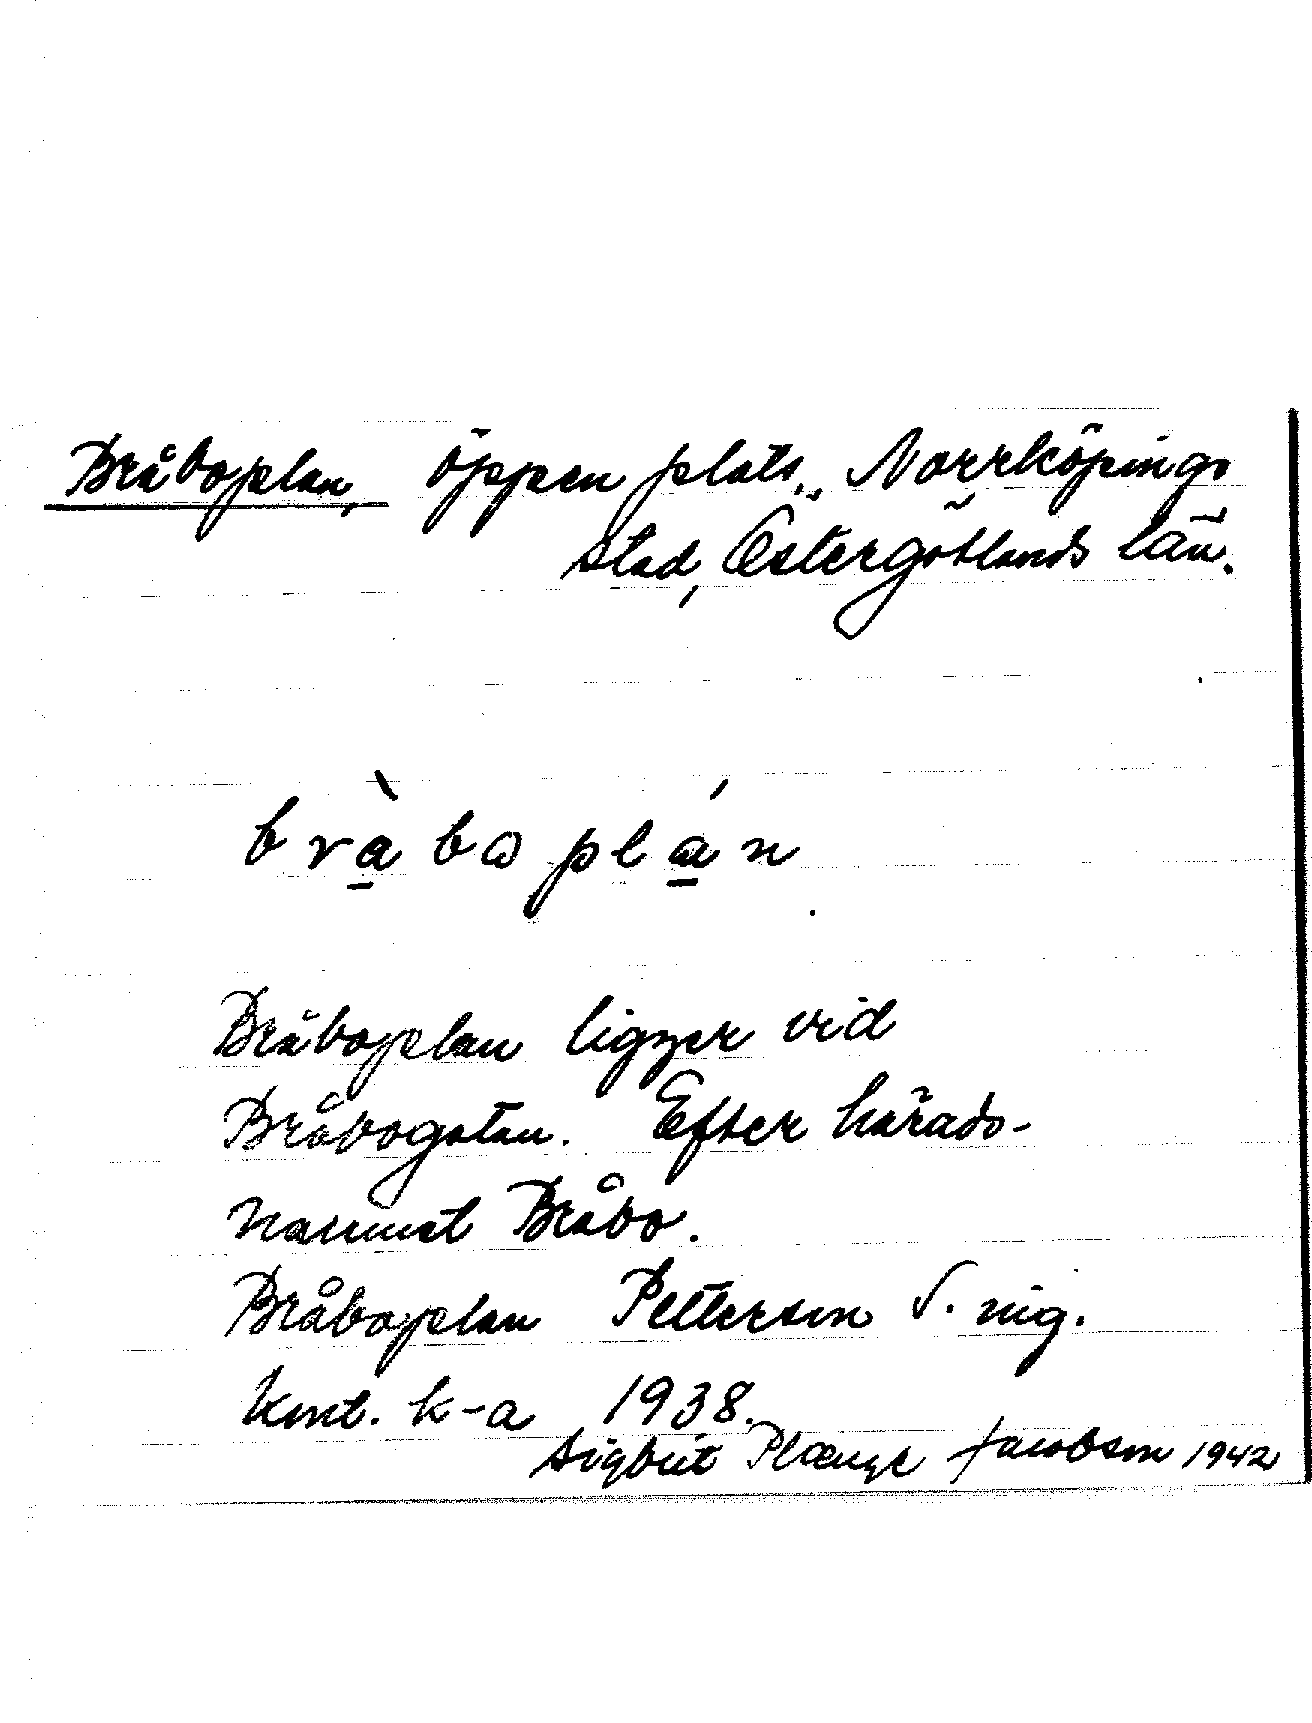 Bråboplan, öppen plats, Norrköpings
stad, Östergötlands län.
bràboplán
Bråboplan ligger vid
Bråbogatan. Efter härads-
namnet Bråbo.
Bråboplan Petterson S. nig.
Kont. k-a 1938.
Sigbrit Plænge Jacobson 1942